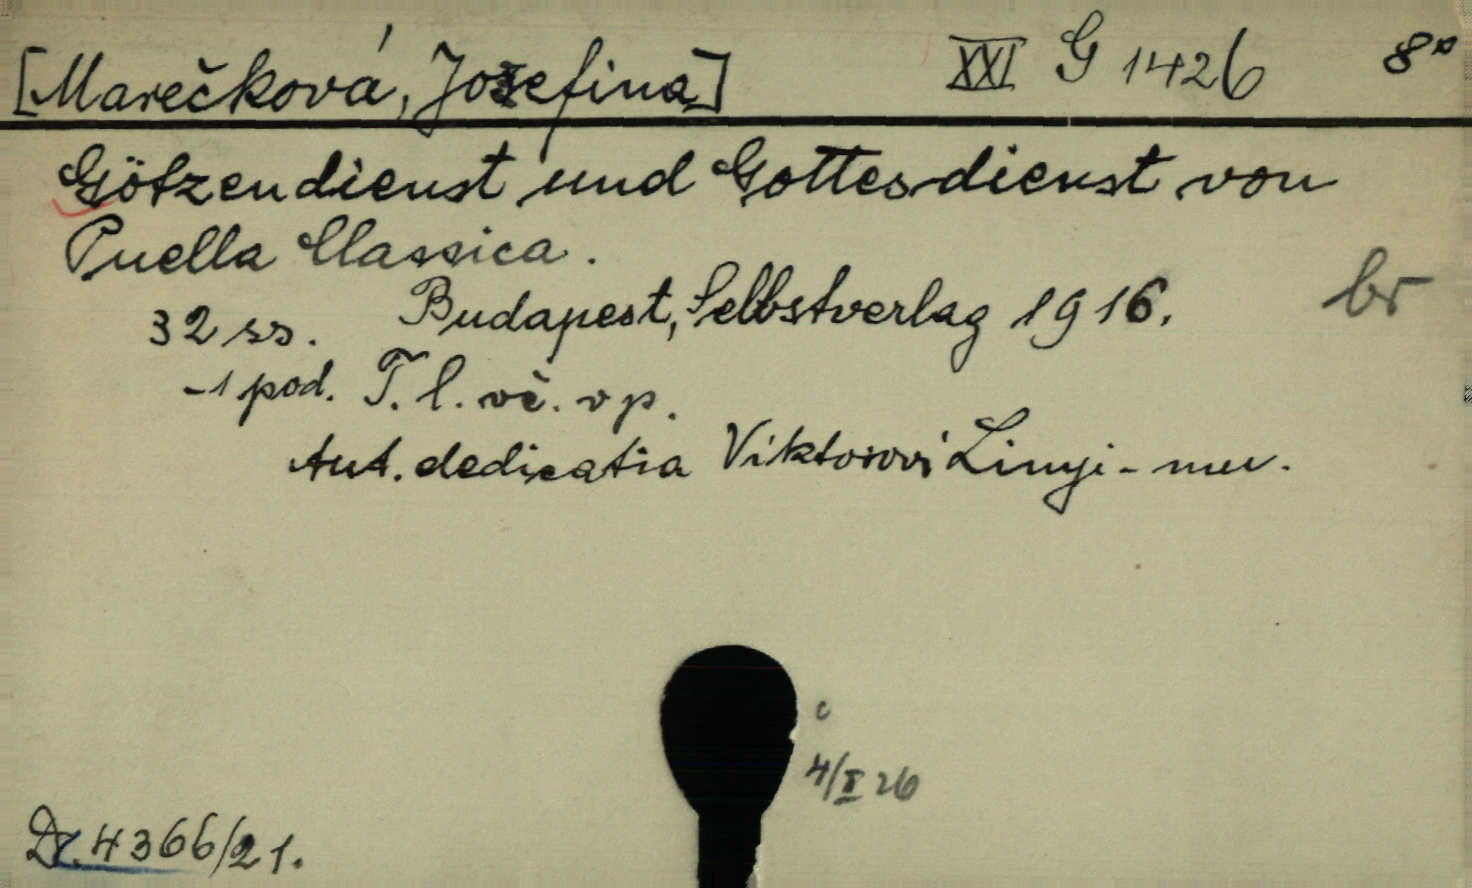 [Marečková, Josefina] XXI G 1426 8°
Götzendienst und Gottesdienst von
Puella Classica.
32 ss. Budapest, Selbstverlag 1916. br
-1 pod. T. l. vč. v p.
Aut. dedicatia Viktorovi
c
4/II 26
Dr. 4366/21.